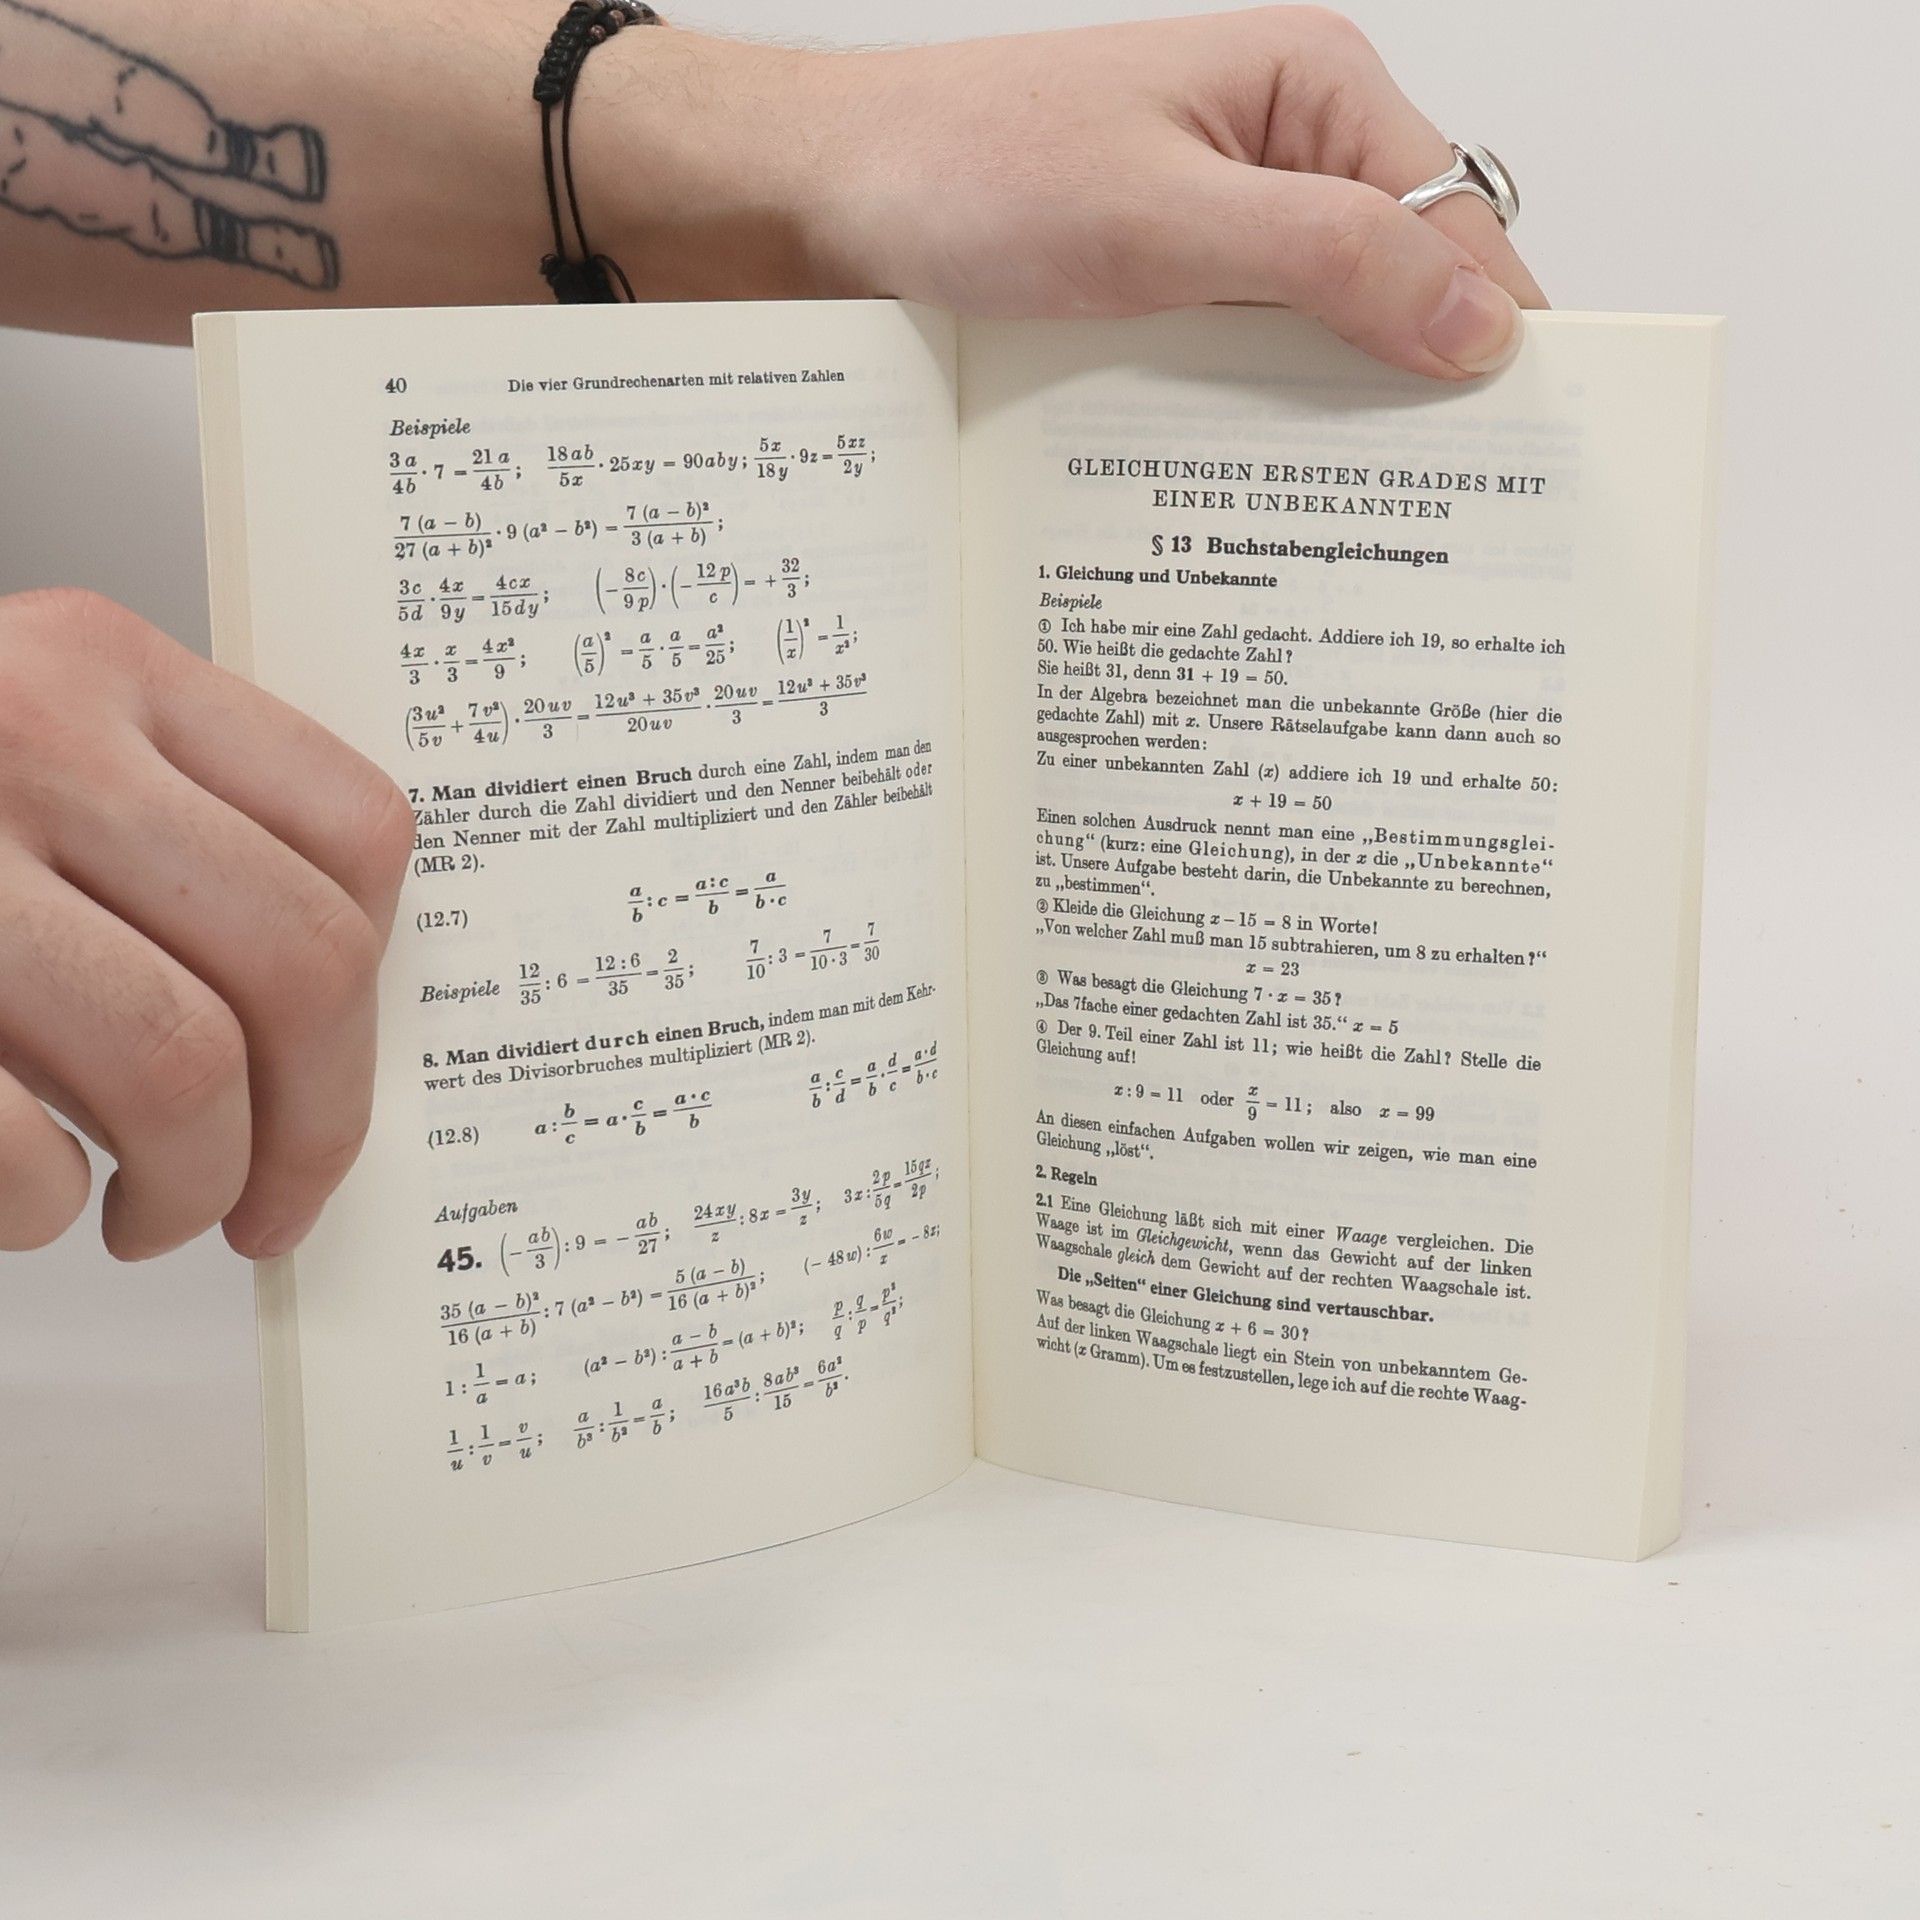 40 Die vier Grundrechenarten mit relativen Zahlen
Beispiele
3a/4b · 7 = 21a/4b; 18ab/5x · 25xy = 90aby; 5x/18y · 9z = 5xz/2y;
7(a − b)/27(a + b)² · 9(a² − b²) = 7(a − b)²/3(a + b);
3c/5d · 4x/9y = 4cx/15dy; (−8c/9p) · (−12p/c) = +32/3;
4x/3 · x/3 = 4x²/9; (a/5)² = a/5 · a/5 = a²/25; (1/x)² = 1/x²;
(3u²/5v + 7v²/4u) · 20uv/3 = 12u³ + 35v³/20uv · 20uv/3 = 12u³ + 35v³/3
7. Man dividiert einen Bruch durch eine Zahl, indem man den
Zähler durch die Zahl dividiert und den Nenner beibehält oder
den Nenner mit der Zahl multipliziert und den Zähler beibehält
(MR 2).
(12.7) a/b : c = a : c/b = a/b · c
Beispiele 12/35 : 6 = 12 : 6/35 = 2/35; 7/10 : 3 = 7/10 · 3 = 7/30
8. Man dividiert durch einen Bruch, indem man mit dem Kehr-
wert des Divisorbruches multipliziert (MR 2).
(12.8) a : b/c = a · c/b = a · c/b a/b : c/d = a/b · d/c = a · d/b · c
Aufgaben
45. (−ab/3) : 9 = −ab/27; 24xy/z : 8x = 3y/z; 3x : 2p/5q = 15qx/2p;
35(a − b)²/16(a + b) : 7(a² − b²) = 5(a − b)/16(a + b)²; (−48w) : 6w/x = −8x;
1 : 1/a = a; (a² − b²) : a − b/a + b = (a + b)²; p/q : q/p = p²/q²;
1/u : 1/v = v/u; a/b³ : 1/b² = a/b; 16a³b/5 : 8ab³/15 = 6a²/b².
GLEICHUNGEN ERSTEN GRADES MIT
EINER UNBEKANNTEN
§ 13 Buchstabengleichungen
1. Gleichung und Unbekannte
Beispiele
① Ich habe mir eine Zahl gedacht. Addiere ich 19, so erhalte ich
50. Wie heißt die gedachte Zahl?
Sie heißt 31, denn 31 + 19 = 50.
In der Algebra bezeichnet man die unbekannte Größe (hier die
gedachte Zahl) mit x. Unsere Rätselaufgabe kann dann auch so
ausgesprochen werden:
Zu einer unbekannten Zahl (x) addiere ich 19 und erhalte 50:
x + 19 = 50
Einen solchen Ausdruck nennt man eine „Bestimmungsglei-
chung“ (kurz: eine Gleichung), in der x die „Unbekannte“
ist. Unsere Aufgabe besteht darin, die Unbekannte zu berechnen,
zu „bestimmen“.
② Kleide die Gleichung x − 15 = 8 in Worte!
„Von welcher Zahl muß man 15 subtrahieren, um 8 zu erhalten?“
x = 23
③ Was besagt die Gleichung 7 · x = 35?
„Das 7fache einer gedachten Zahl ist 35.“ x = 5
④ Der 9. Teil einer Zahl ist 11; wie heißt die Zahl? Stelle die
Gleichung auf!
x : 9 = 11 oder x/9 = 11; also x = 99
An diesen einfachen Aufgaben wollen wir zeigen, wie man eine
Gleichung „löst“.
2. Regeln
2.1 Eine Gleichung läßt sich mit einer Waage vergleichen. Die
Waage ist im Gleichgewicht, wenn das Gewicht auf der linken
Waagschale gleich dem Gewicht auf der rechten Waagschale ist.
Die „Seiten“ einer Gleichung sind vertauschbar.
Was besagt die Gleichung x + 6 = 30?
Auf der linken Waagschale liegt ein Stein von unbekanntem Ge-
wicht (x Gramm). Um es festzustellen, lege ich auf die rechte Waag-